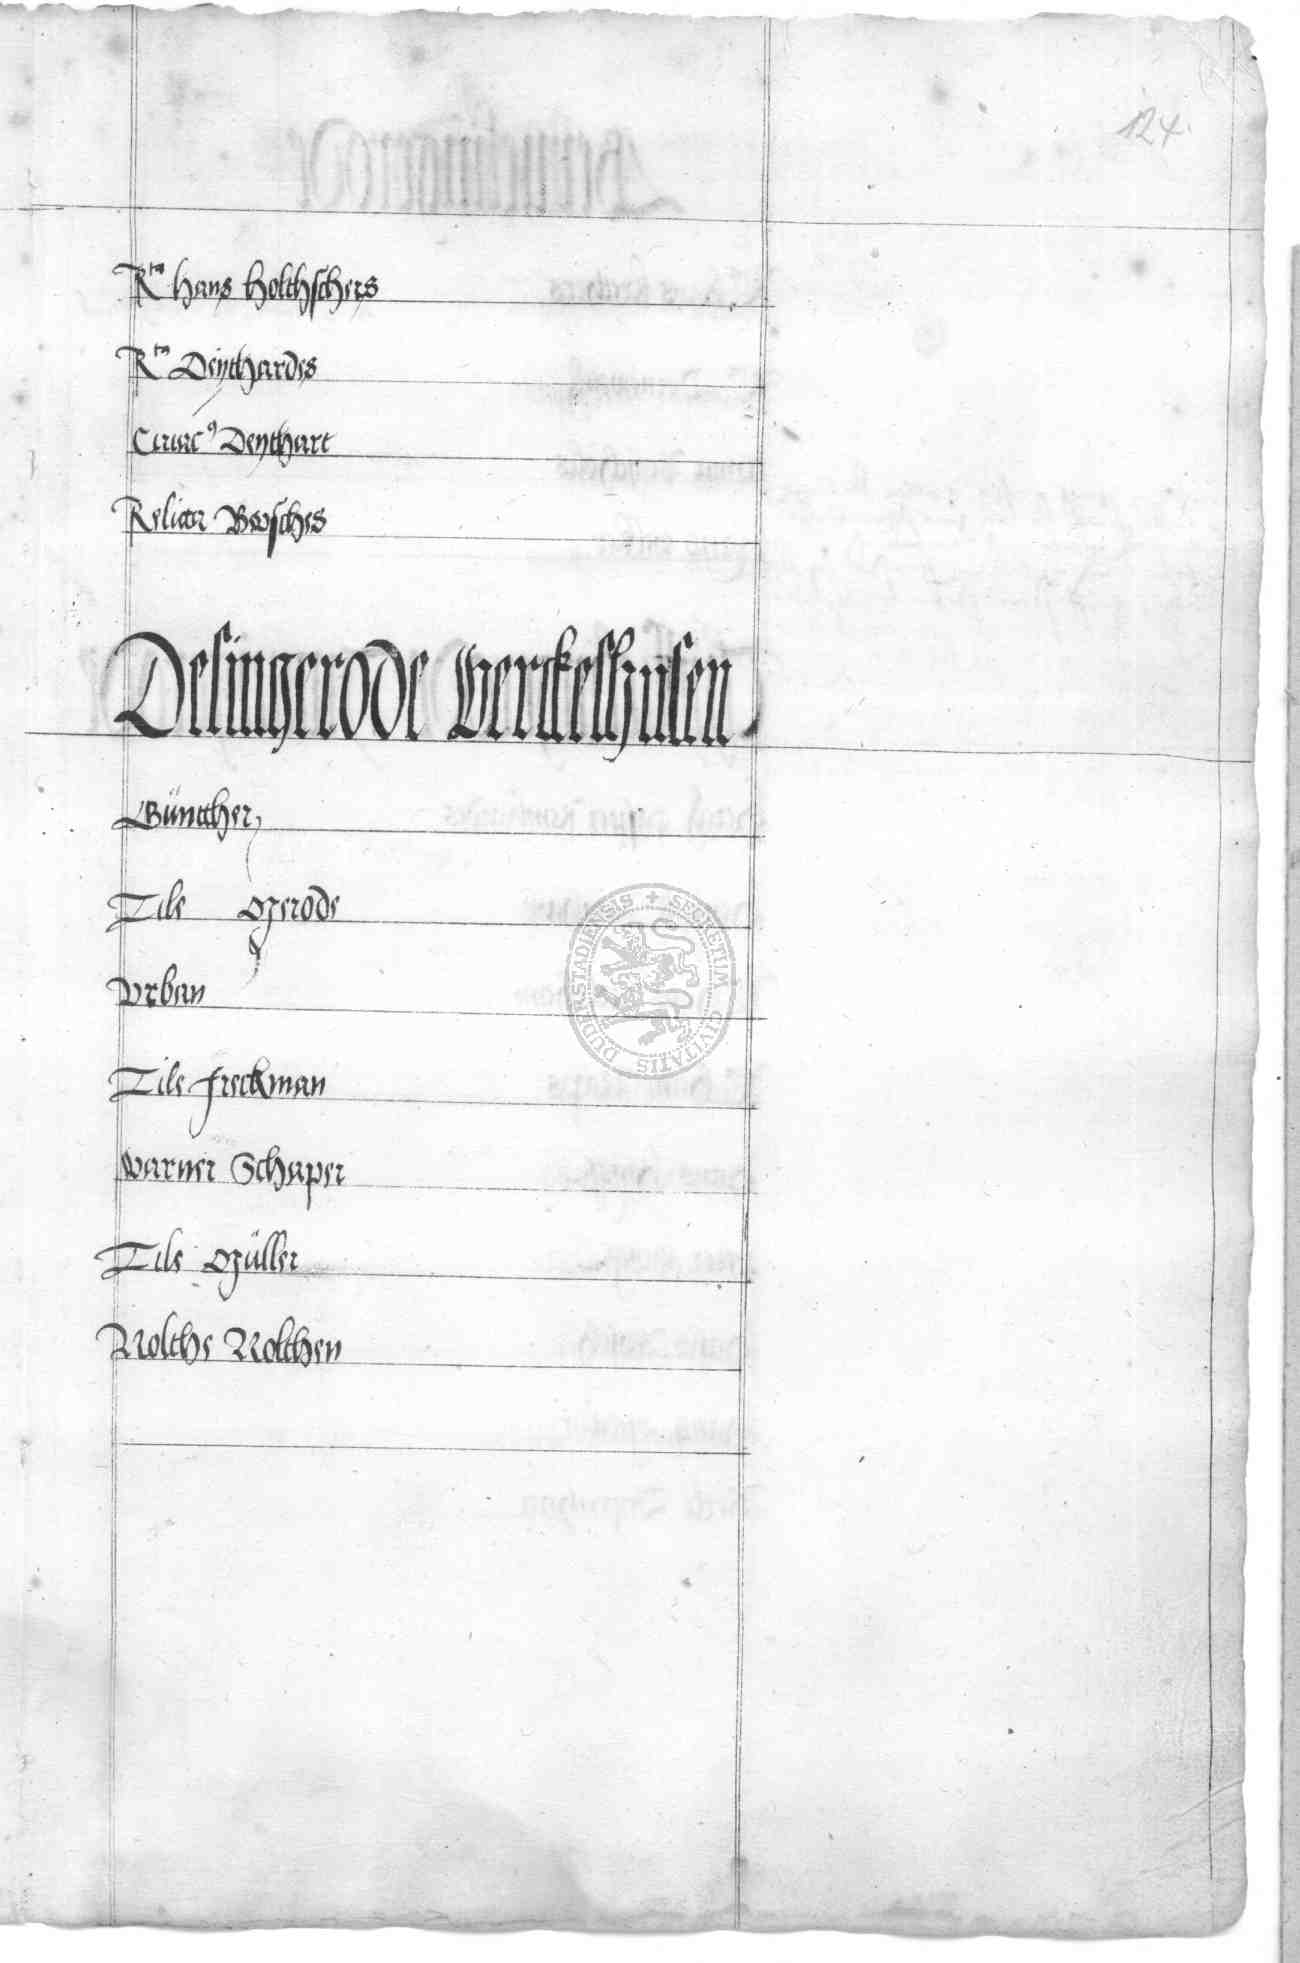 124.
R^ta Hans Holthschers
R^ta Deÿthardes
Ciriac9 Deythart
Relicta Bwsches
Desingerode Werckelhusen
Günther
Tile Mzerode
Vrban
Tile freckman
Warner Schaper
Tile Müller
Nolthe Nolthen
SECRETUM CIVITATIS DUDERSTADIENSIS